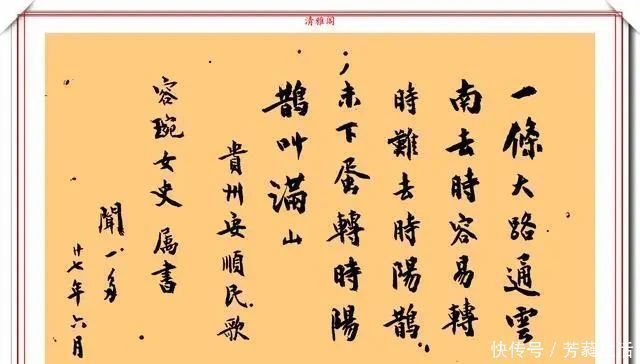 清雅阁
一條大路通雲
南去時容易轉
時難去時陽鵲
未下蛋轉時陽
鵲叫滿山
貴州安順民歌
容琬女史 属書
聞一多
廿七年六月
快传号/芳 生活